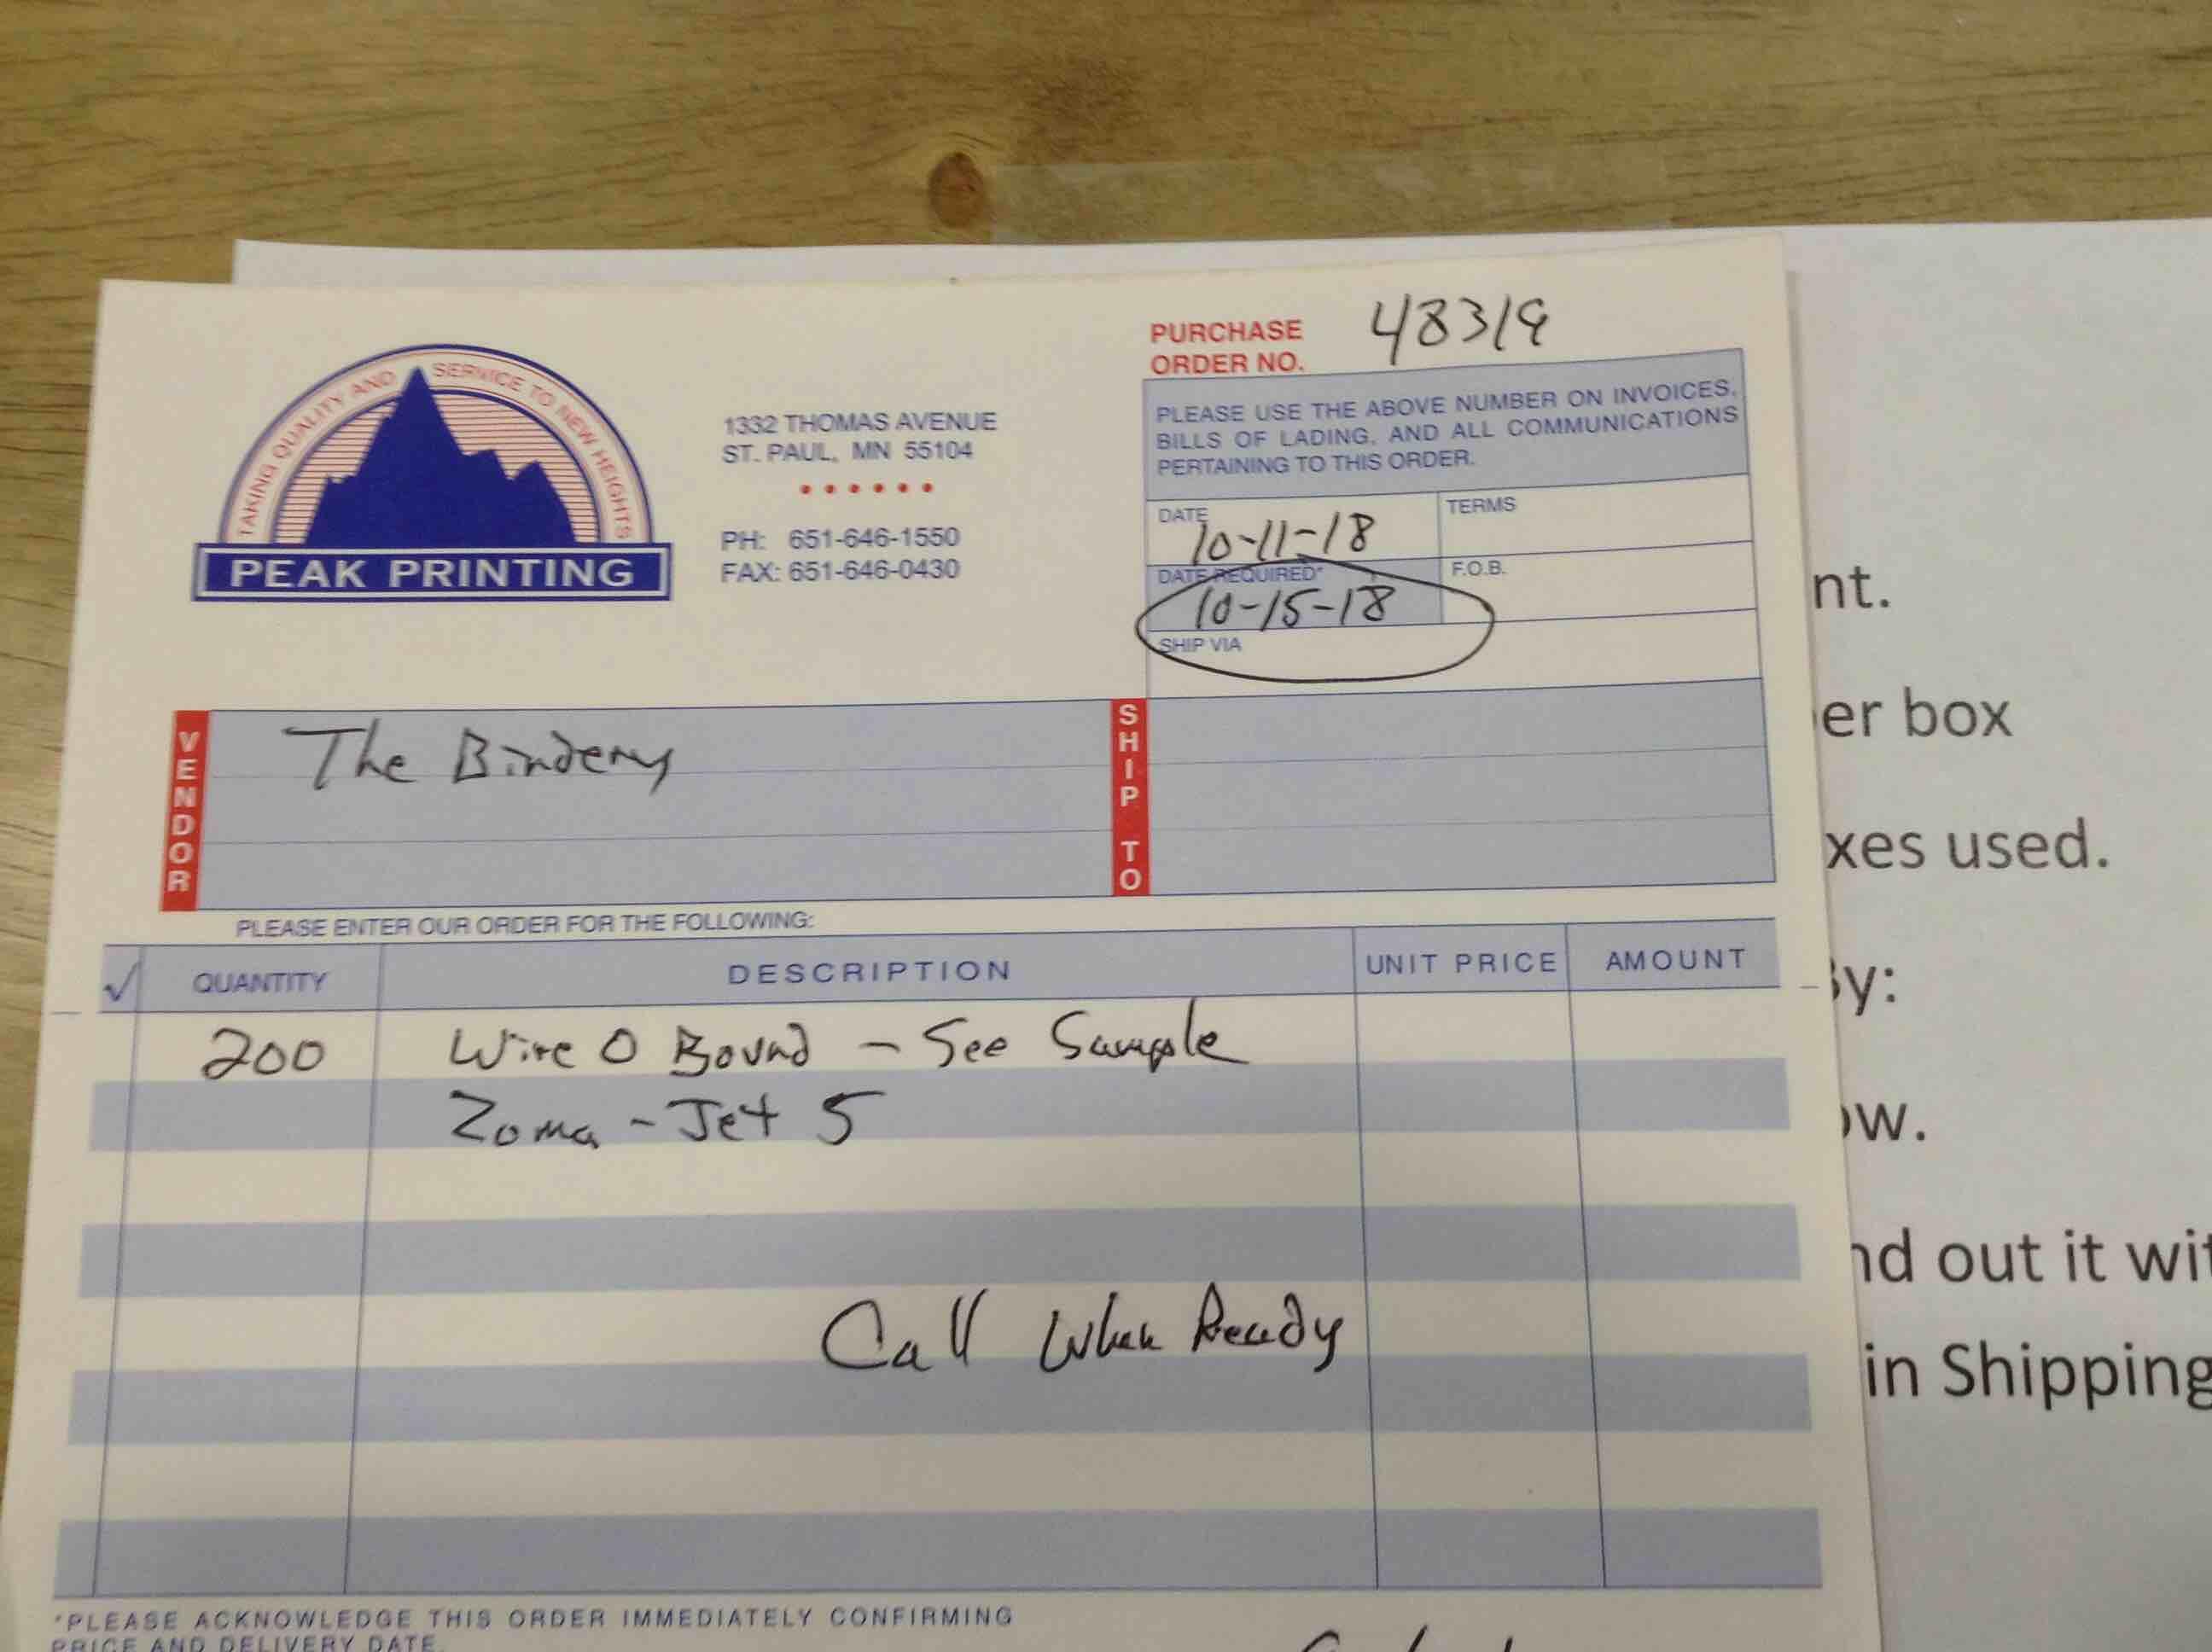 TAKING QUALITY AND SERVICE TO NEW HEIGHTS
PEAK PRINTING
1332 THOMAS AVENUE
ST. PAUL, MN 55104
PH: 651-646-1550
FAX: 651-646-0430
PURCHASE
ORDER NO.
48319
PLEASE USE THE ABOVE NUMBER ON INVOICES,
BILLS OF LADING, AND ALL COMMUNICATIONS
PERTAINING TO THIS ORDER.
DATE
10-11-18
TERMS
DATE REQUIRED*
10-15-18
F.O.B.
SHIP VIA
VENDOR
The Bindery
SHIP TO
PLEASE ENTER OUR ORDER FOR THE FOLLOWING:
✓ QUANTITY DESCRIPTION UNIT PRICE AMOUNT
200 Wire O Bound - See Sample
Zoma - Jet 5
Call When Ready
*PLEASE ACKNOWLEDGE THIS ORDER IMMEDIATELY CONFIRMING
PRICE AND DELIVERY DATE.
nt.
er box
xes used.
y:
ow.
nd out it wit
in Shipping